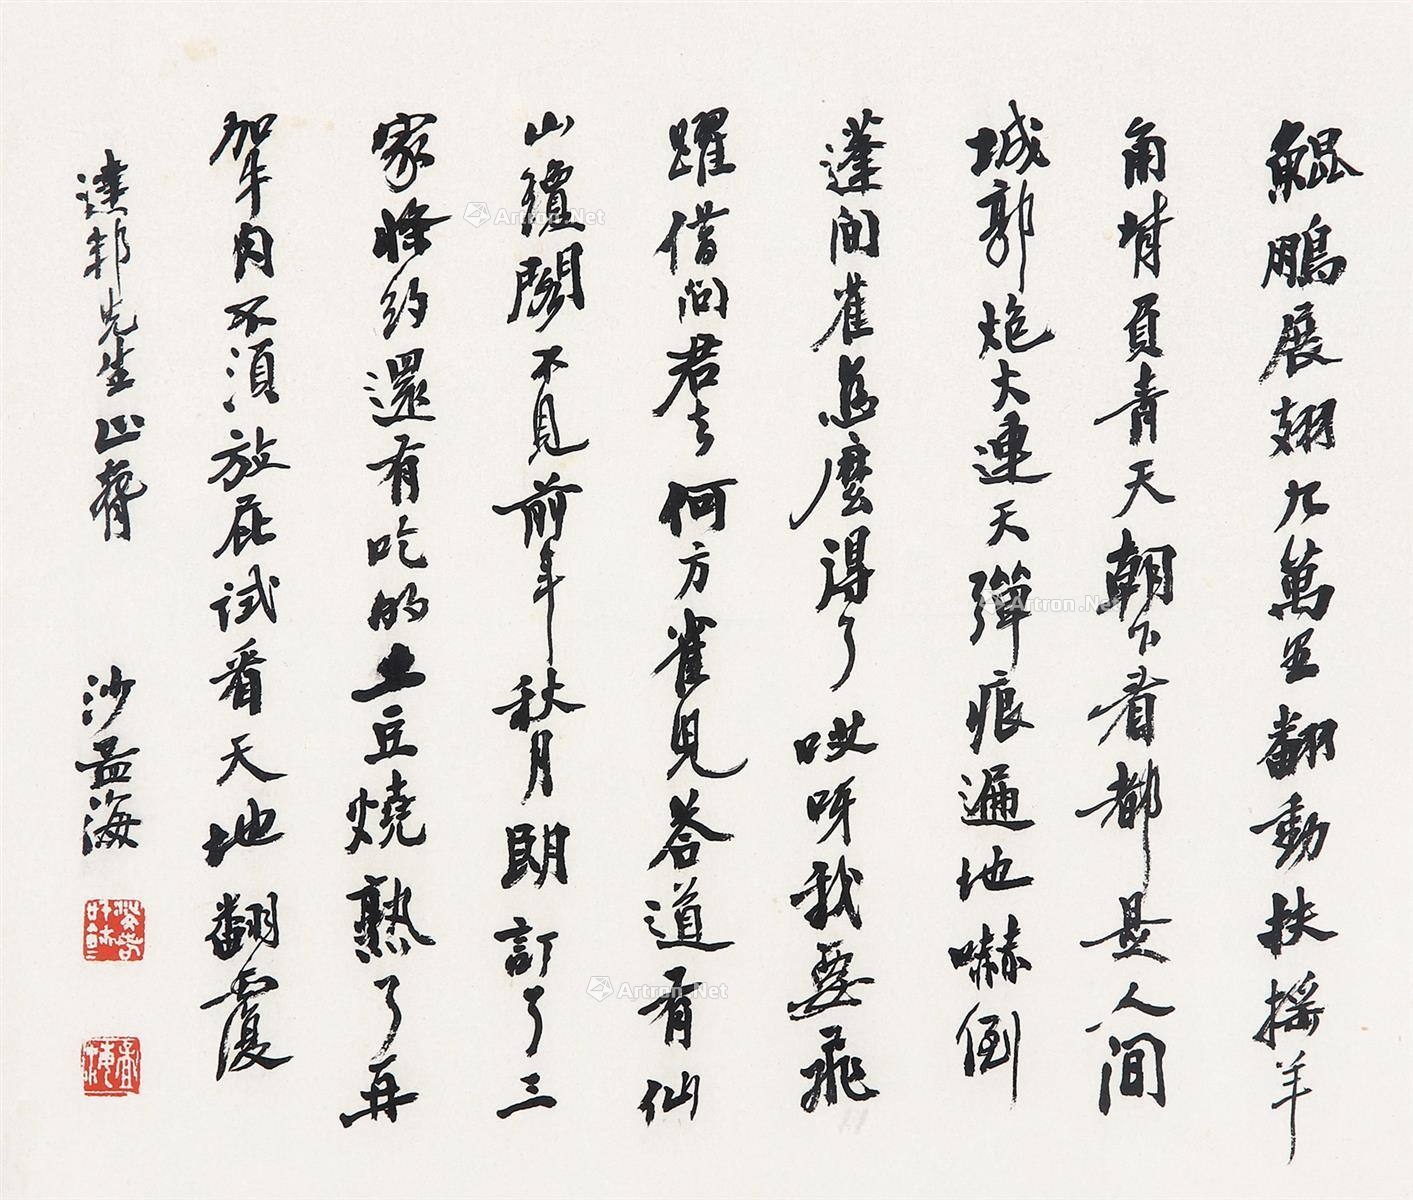 鯤鵬展翅九萬里翻動扶搖羊
角背負青天朝下看都是人間
城郭炮火連天彈痕遍地嚇倒
蓬間雀怎麼得了哎呀我要飛
躍借問君去何方雀兒答道有仙
山瓊閣不見前年秋月朗訂了三
家條約還有吃的土豆燒熟了再
加牛肉不須放屁試看天地翻覆
達邦先生正 沙孟海
Artron.Net
Artron.Net
Artron.Net